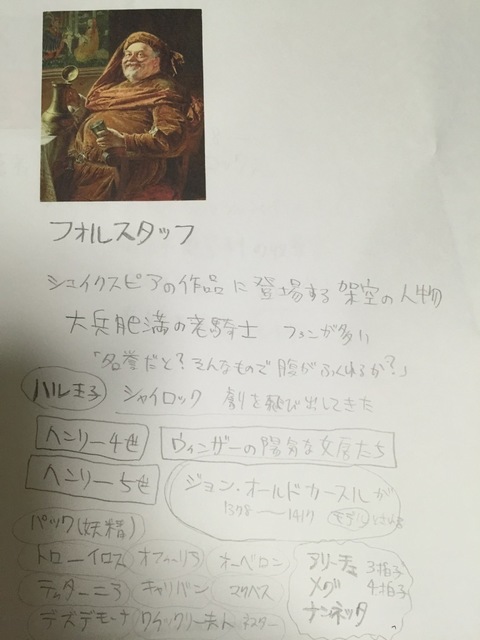 フォルスタッフ
シェイクスピアの作品に登場する架空の人物
大兵肥満の老騎士 ファンが多い
「名誉だと?そんなもので腹がふくれるか?」
ハル王子 シャイロック 劇を飛び出してきた
ヘンリー4世 ウィンザーの陽気な女房たち
ヘンリー5世 ジョン・オールドカースルが
1378〜1417 モデルとされる
パック(妖精)
トローイロス オフィーリア オーベロン アリーチェ 3拍子
ティターニア キャリバン マクベス メグ 4拍子
デズデモーナ クイックリー夫人 ナンネッタ